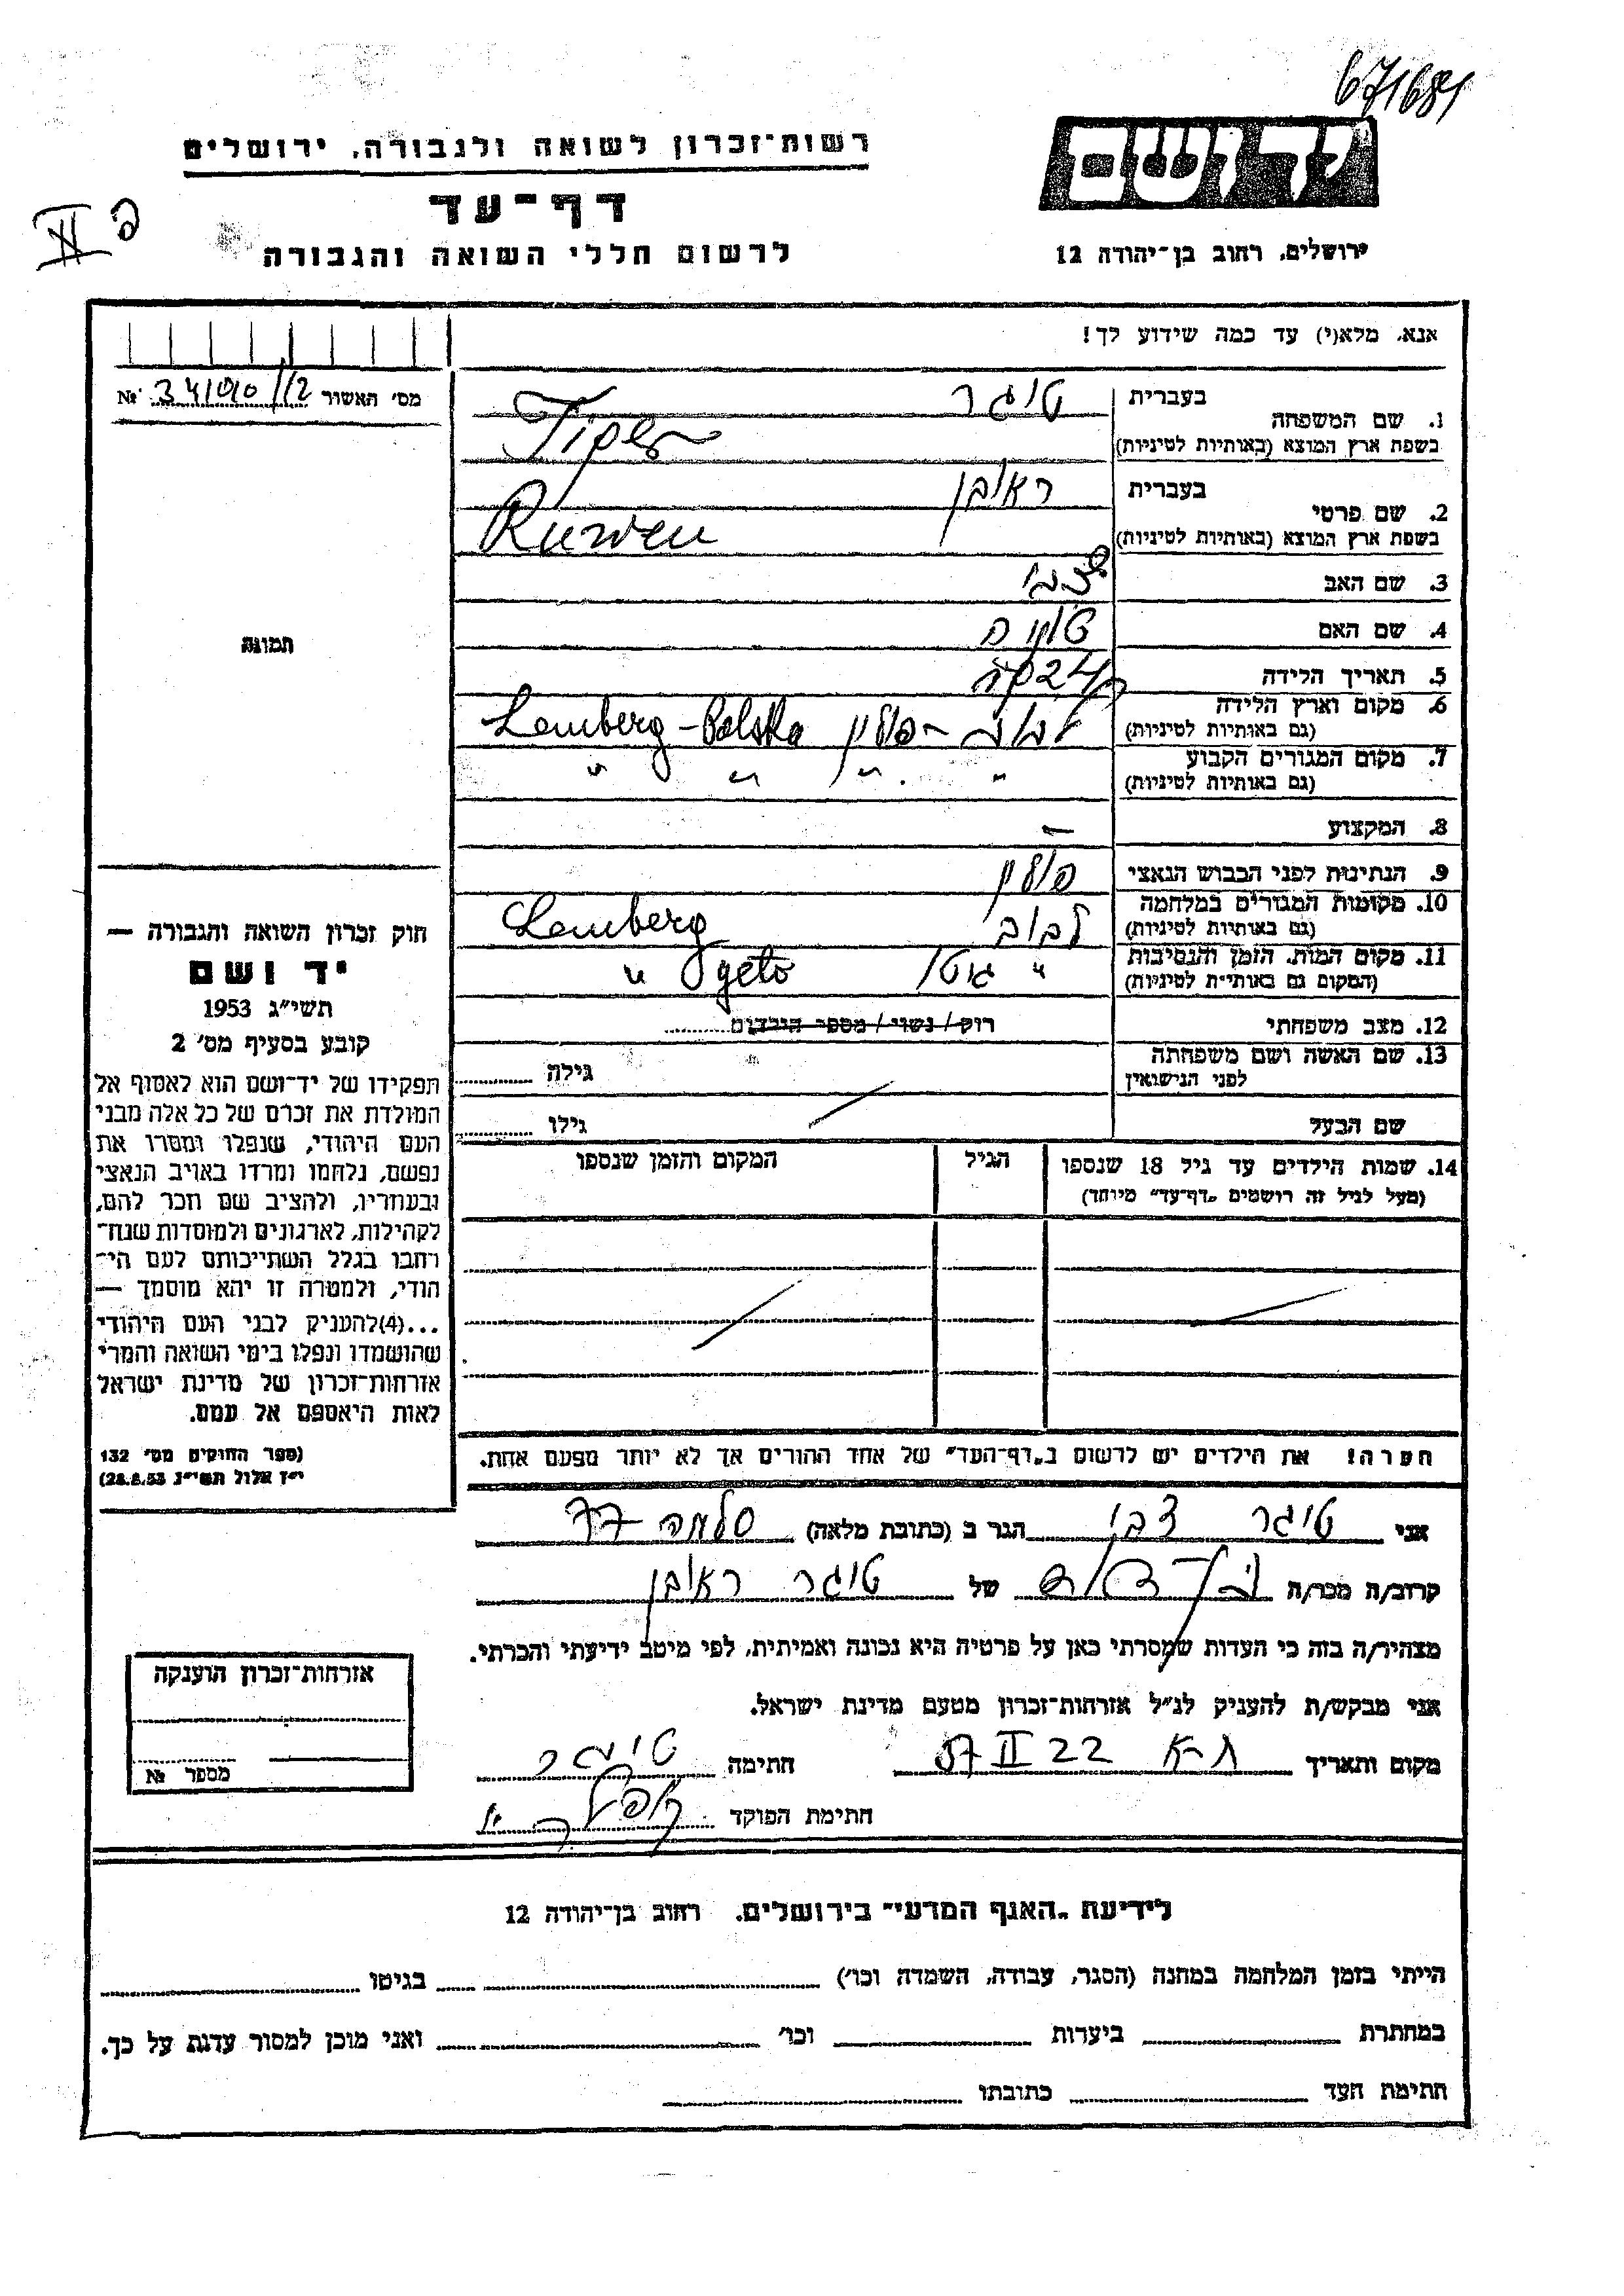 671681
יד ושם
רשות־זכרון לשואה ולגבורה, ירושלים
דף־עד
לרשום חללי השואה והגבורה
ירושלים, רחוב בן־יהודה 12
אנא, מלא(י) עד כמה שידוע לך!
מס' האשור № 341010/12
1. שם המשפחה
בעברית טיגר
בשפת ארץ המוצא (באותיות לטיניות) Tiger
2. שם פרטי
בעברית ראובן
בשפת ארץ המוצא (באותיות לטיניות) Ruwen
3. שם האב
4. שם האם
5. תאריך הלידה
6. מקום וארץ הלידה לבוב - פולין Lemberg - Polska
(גם באותיות לטיניות)
7. מקום המגורים הקבוע " " " "
(גם באותיות לטיניות)
8. המקצוע —
9. הנתינות לפני הכבוש הנאצי פולין
10. מקומות המגורים במלחמה לבוב Lemberg
(גם באותיות לטיניות)
11. מקום המות, הזמן והנסיבות " גטו " geto
(המקום גם באותיות לטיניות)
12. מצב משפחתי רוק / נשוי / מספר הילדים
13. שם האשה ושם משפחתה
לפני הנישואין
גילה
שם הבעל גילו
14. שמות הילדים עד גיל 18 שנספו הגיל המקום והזמן שנספו
(מעל לגיל זה רושמים "דף־עד" מיוחד)
הערה! את הילדים יש לרשום ב"דף־העד" של אחד ההורים אך לא יותר מפעם אחת.
תמונה
חוק זכרון השואה והגבורה —
יד ושם
תשי"ג 1953
קובע בסעיף מס' 2
תפקידו של יד־ושם הוא לאסוף אל
המולדת את זכרם של כל אלה מבני
העם היהודי, שנפלו ומסרו את
נפשם, נלחמו ומרדו באויב הנאצי
ובעוזריו, ולהציב שם וזכר להם,
לקהילות, לארגונים ולמוסדות שנח־
רבו בגלל השתייכותם לעם הי־
הודי, ולמטרה זו יהא מוסמך —
...(4)להעניק לבני העם היהודי
שהושמדו ונפלו בימי השואה והמרי
אזרחות־זכרון של מדינת ישראל
לאות היאספם אל עמם.
(ספר החוקים מס' 132
י"ז אלול תשי"ג 28.8.53)
אני טיגר צבי הגר ב (כתובת מלאה) סלמה 77
קרוב/ה מכר/ה של טיגר ראובן
מצהיר/ה בזה כי העדות שמסרתי כאן על פרטיה היא נכונה ואמיתית, לפי מיטב ידיעתי והכרתי.
אני מבקש/ת להעניק לנ"ל אזרחות־זכרון מטעם מדינת ישראל.
מקום ותאריך ת-א 22 II 57 חתימה טיגר
חתימת הפוקד
אזרחות־זכרון הוענקה
מספר №
לידיעת "האגף המדעי" בירושלים, רחוב בן־יהודה 12
הייתי בזמן המלחמה במחנה (הסגר, עבודה, השמדה וכו') בגיטו
במחתרת ביערות וכו' ואני מוכן למסור עדות על כך.
חתימת העד כתובתו